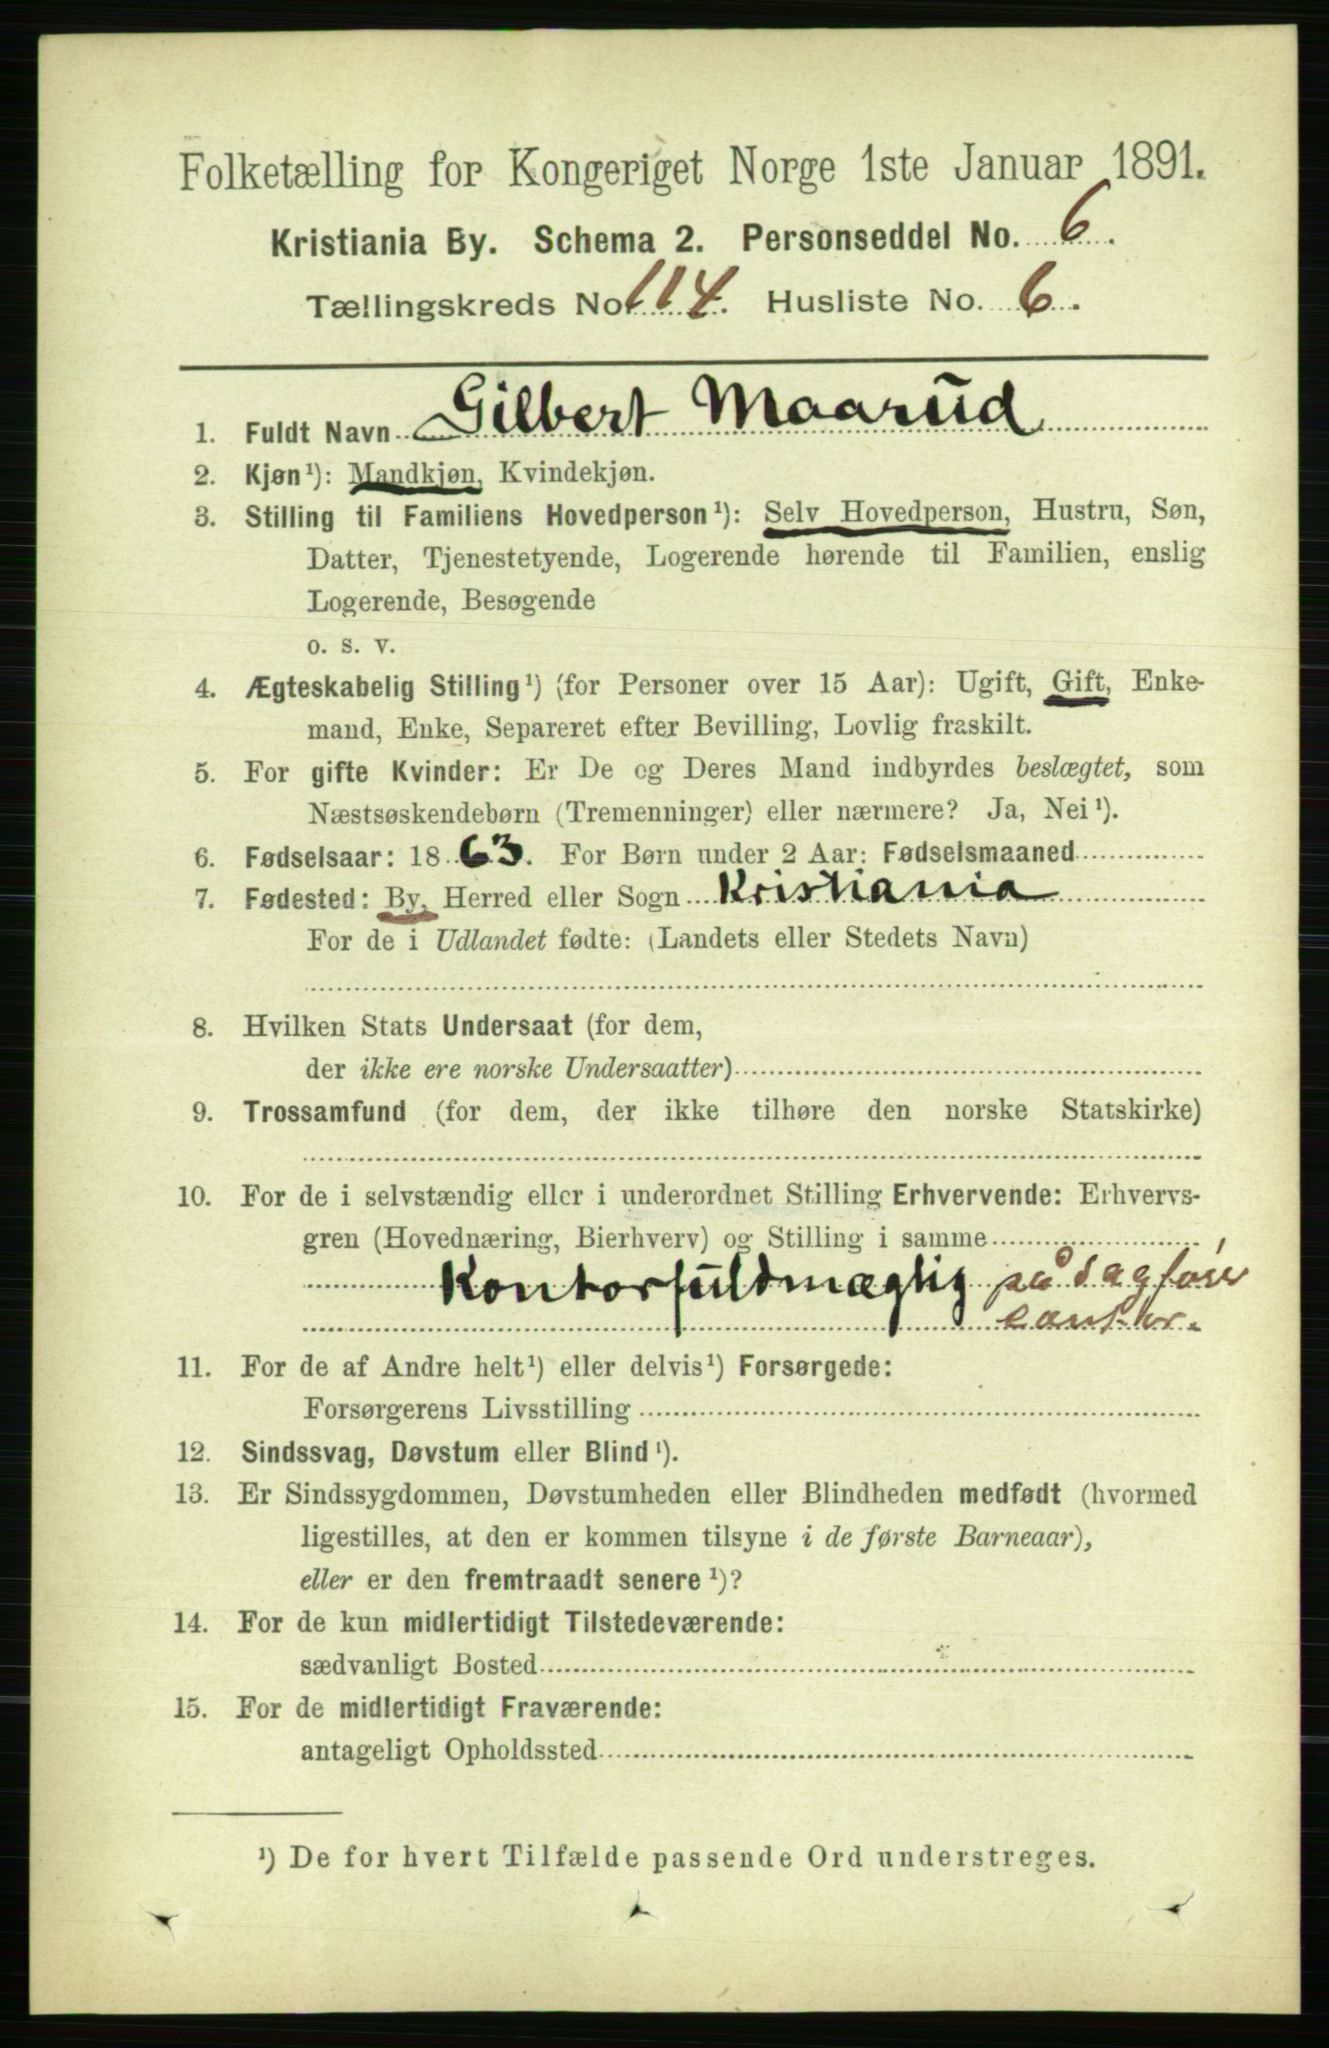 Folketælling for Kongeriget Norge 1ste Januar 1891.
Kristiania By. Schema 2. Personseddel No. 6.
Tællingskreds No. 114. Husliste No. 6.
1. Fuldt Navn Gilbert Maarud
2. Kjøn¹): Mandkjøn, Kvindekjøn.
3. Stilling til Familiens Hovedperson¹): Selv Hovedperson, Hustru, Søn,
Datter, Tjenestetyende, Logerende hørende til Familien, enslig
Logerende, Besøgende
o. s. v.
4. Ægteskabelig Stilling¹) (for Personer over 15 Aar): Ugift, Gift, Enke-
mand, Enke, Separeret efter Bevilling, Lovlig fraskilt.
5. For gifte Kvinder: Er De og Deres Mand indbyrdes beslægtet, som
Næstsøskendebørn (Tremenninger) eller nærmere? Ja, Nei¹).
6. Fødselsaar: 1863. For Børn under 2 Aar: Fødselsmaaned
7. Fødested: By, Herred eller Sogn Kristiania
For de i Udlandet fødte: (Landets eller Stedets Navn)
8. Hvilken Stats Undersaat (for dem,
der ikke ere norske Undersaatter)
9. Trossamfund (for dem, der ikke tilhøre den norske Statskirke)
10. For de i selvstændig eller i underordnet Stilling Erhvervende: Erhvervs-
gren (Hovednæring, Bierhverv) og Stilling i samme
Kontorfuldmægtig på Sagfører
contor.
11. For de af Andre helt¹) eller delvis¹) Forsørgede:
Forsørgerens Livsstilling
12. Sindssvag, Døvstum eller Blind¹).
13. Er Sindssygdommen, Døvstumheden eller Blindheden medfødt (hvormed
ligestilles, at den er kommen tilsyne i de første Barneaar),
eller er den fremtraadt senere¹)?
14. For de kun midlertidigt Tilstedeværende:
sædvanligt Bosted
15. For de midlertidigt Fraværende:
antageligt Opholdssted
¹) De for hvert Tilfælde passende Ord understreges.